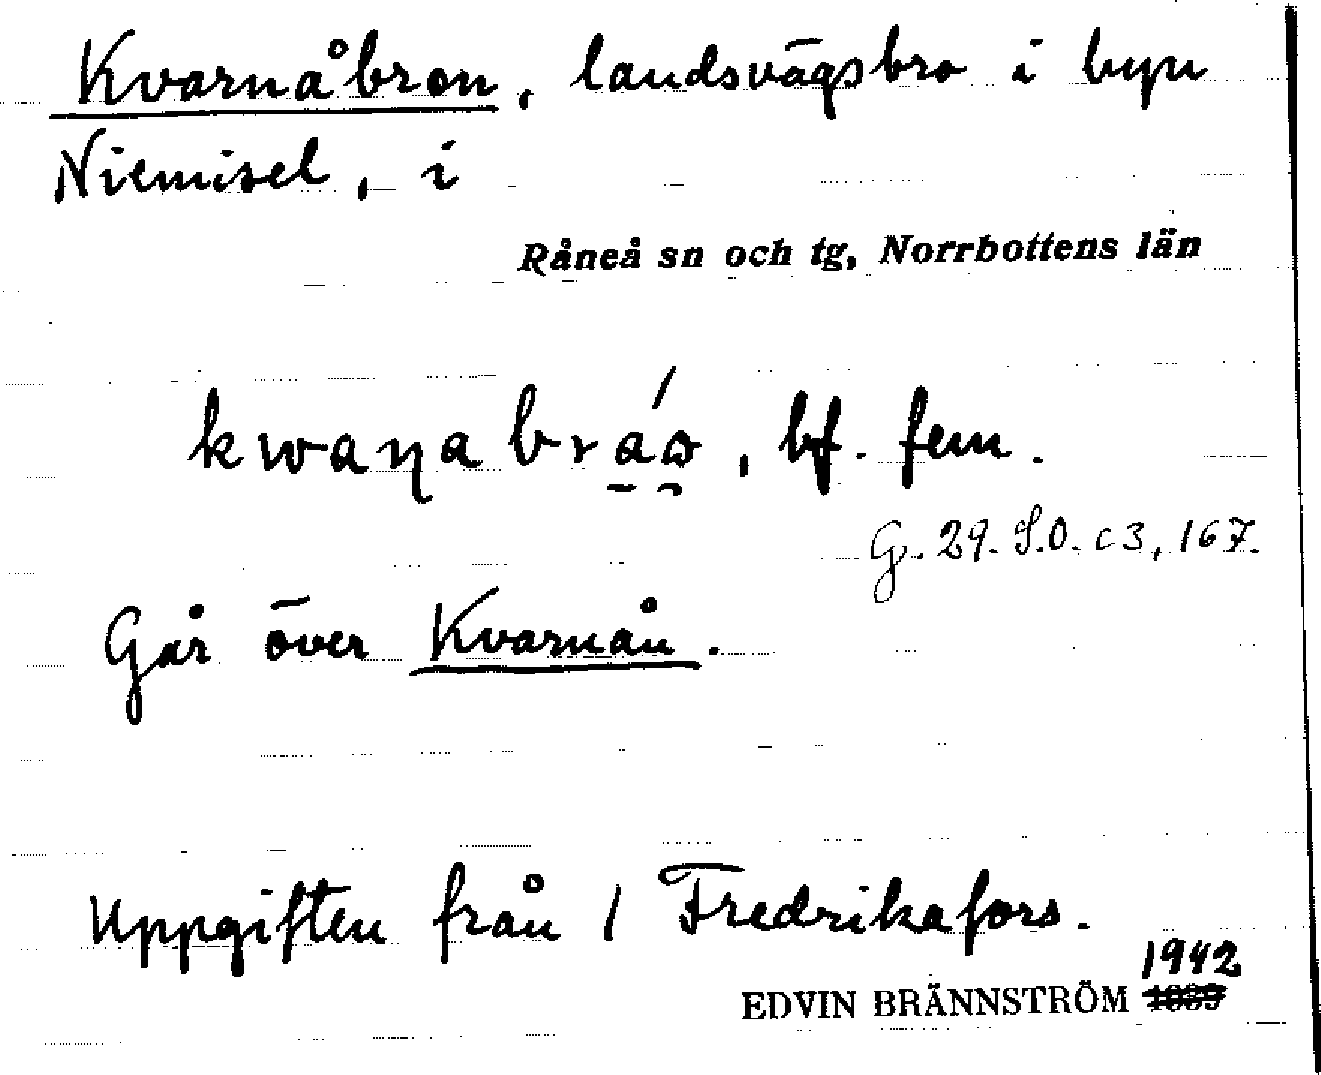 Kvarnåbron, landsvägsbro i byn
Niemisel, i
Råneå sn och tg, Norrbottens län
kwaɳabrá̱ɷ̯, bf. fem.
G. 29. S.O. c3, 167.
Går över Kvarnån.
Uppgiften från / Fredrikafors.
1942
EDVIN BRÄNNSTRÖM 1939